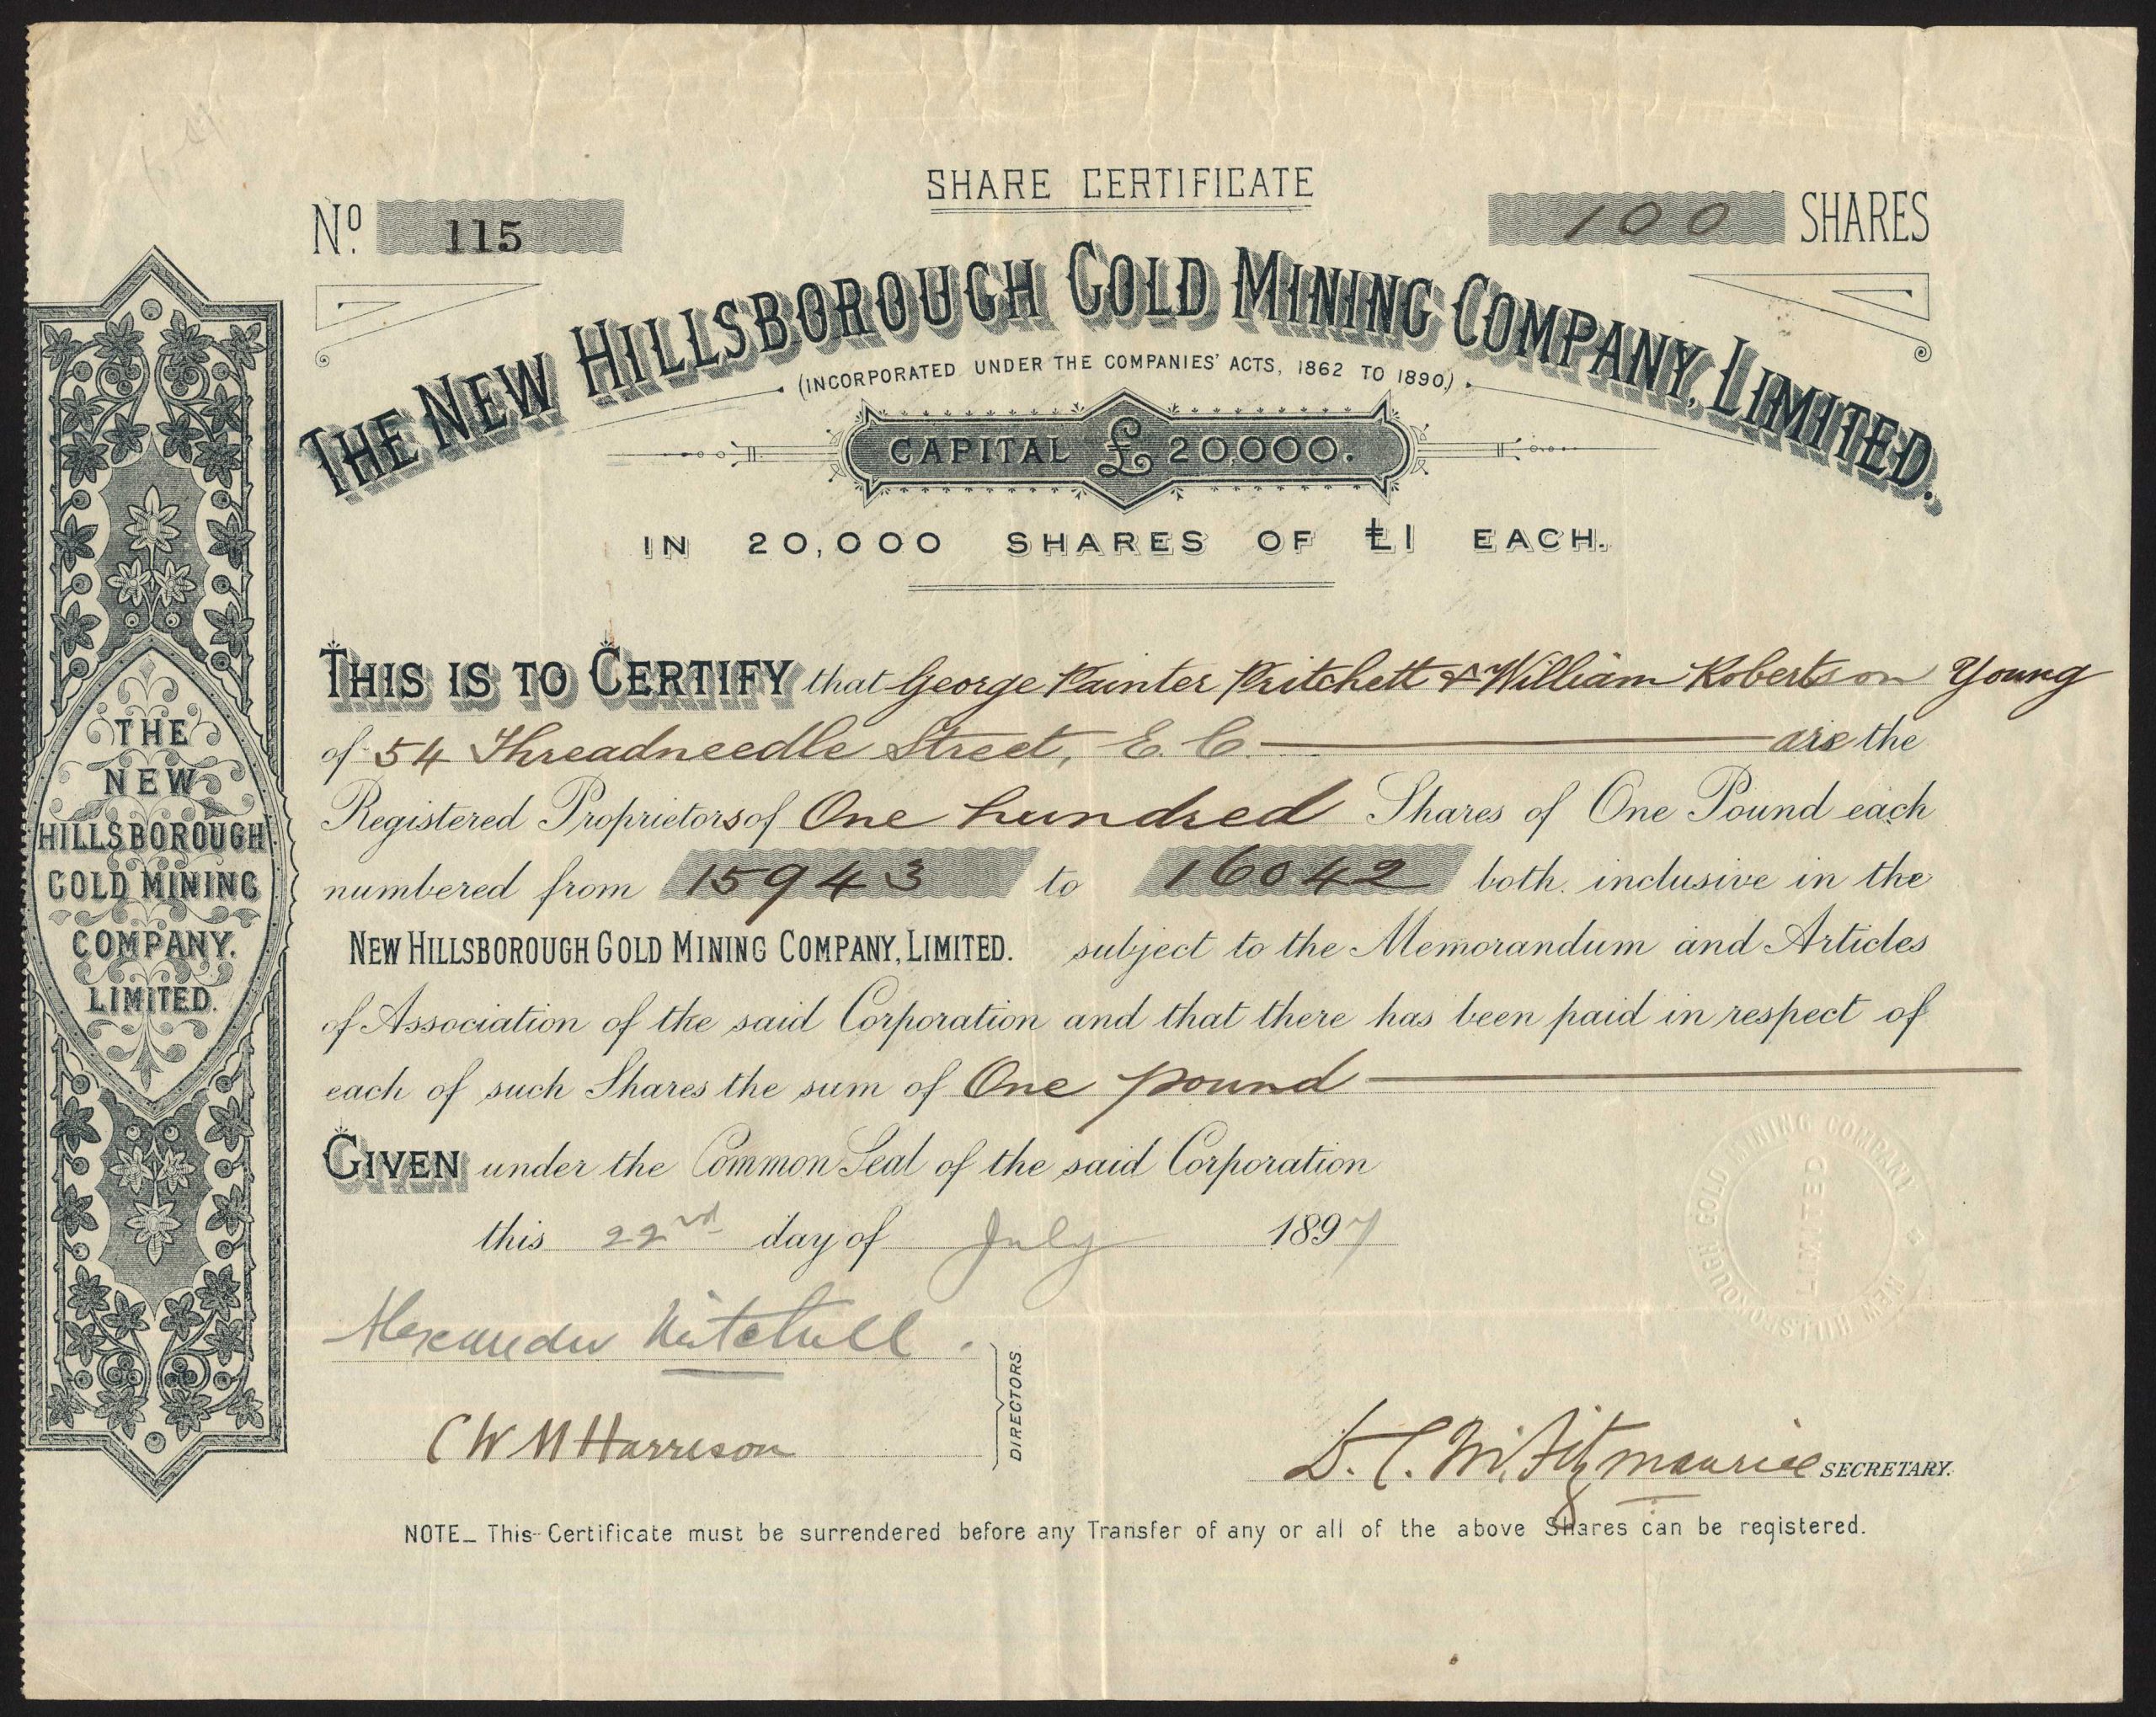 SHARE CERTIFICATE
No. 115
100 SHARES
THE NEW HILLSBOROUGH GOLD MINING COMPANY, LIMITED.
(INCORPORATED UNDER THE COMPANIES' ACTS, 1862 TO 1890.)
CAPITAL £20,000.
IN 20,000 SHARES OF £1 EACH.
THIS IS TO CERTIFY that George Painter Pritchett & William Robertson Young
of 54 Threadneedle Street, E.C. are the
Registered Proprietors of One hundred Shares of One Pound each
numbered from 15943 to 16042 both inclusive in the
NEW HILLSBOROUGH GOLD MINING COMPANY, LIMITED. subject to the Memorandum and Articles
of Association of the said Corporation and that there has been paid in respect of
each of such Shares the sum of One pound
GIVEN under the Common Seal of the said Corporation
this 22nd day of July 1897
Alexander Mitchell.
C W M Harrison
DIRECTORS
D. C. M. Fitzmaurice SECRETARY.
NOTE_ This Certificate must be surrendered before any Transfer of any or all of the above Shares can be registered.
THE
NEW
HILLSBOROUGH
GOLD MINING
COMPANY.
LIMITED.
NEW HILLSBOROUGH GOLD MINING COMPANY
LIMITED